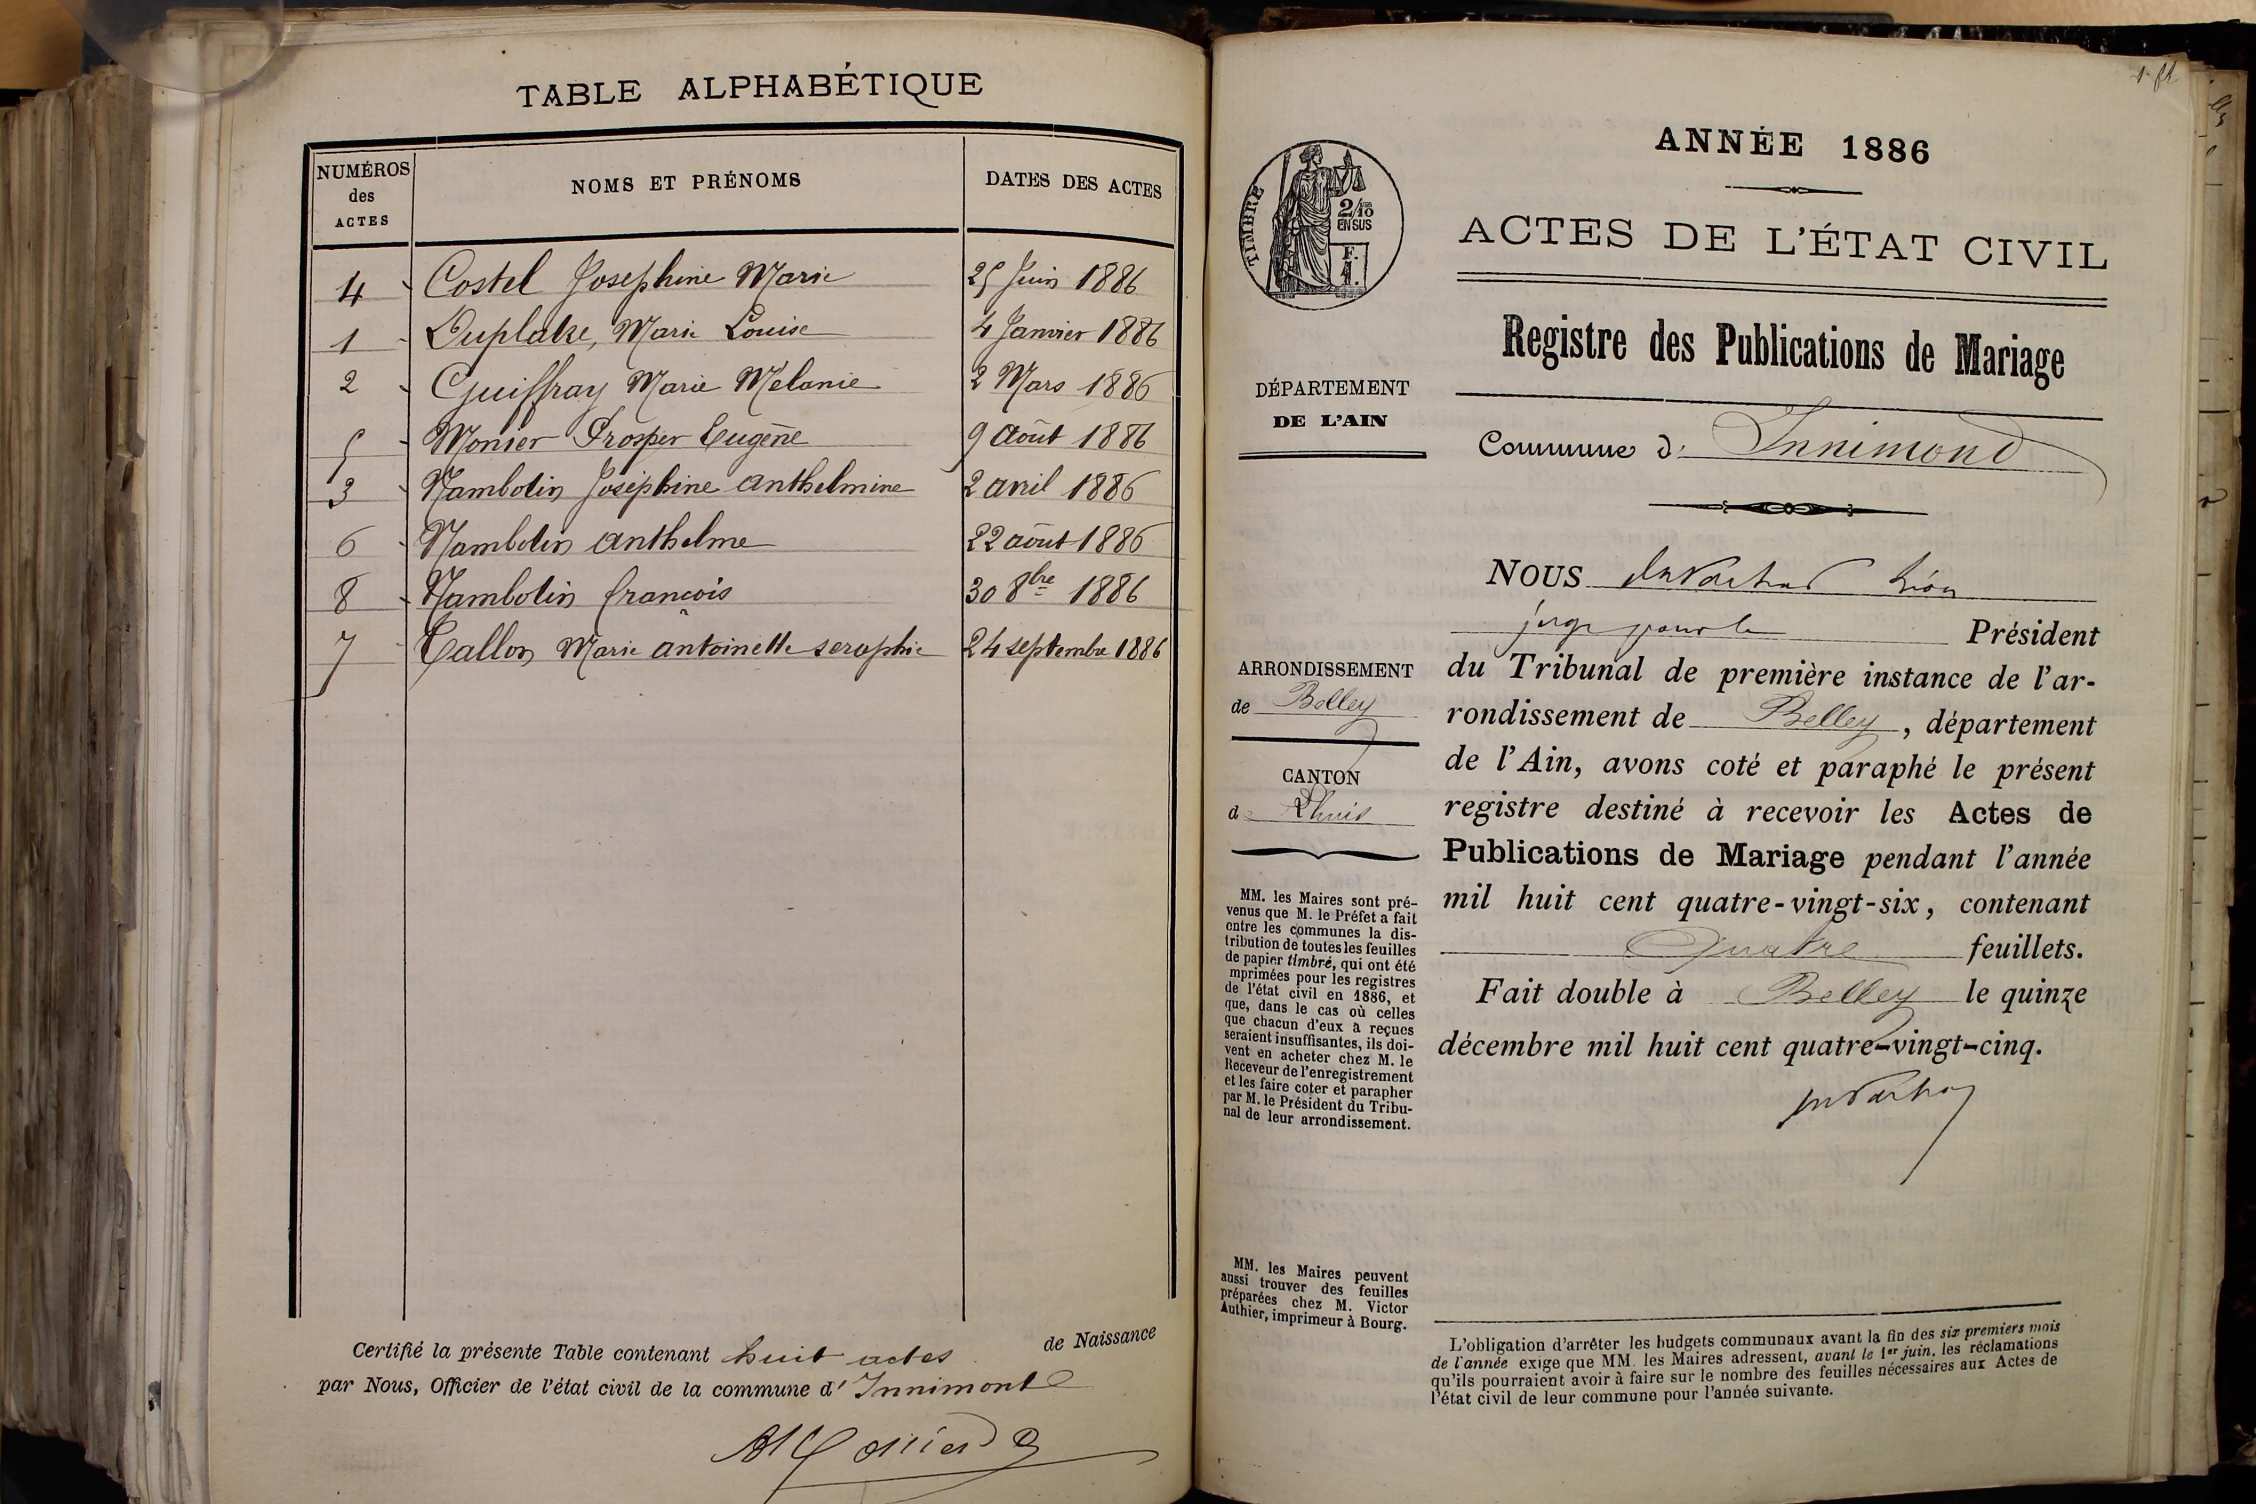 TABLE ALPHABÉTIQUE
NUMÉROS des ACTES
NOMS ET PRÉNOMS
DATES DES ACTES
4 Costel Josephine Marie 25 Juin 1886
1 Duplatre, Marie Louise 4 Janvier 1886
2 Guiffray Marie Mélanie 2 Mars 1886
5 Monier Prosper Eugène 9 Août 1886
3 Nambotin Joséphine Anthelmine 2 avril 1886
6 Nambotin Anthelme 22 août 1886
8 Nambotin François 30 8bre 1886
7 Tallon Marie Antoinette seraphie 24 septembre 1886
Certifié la présente Table contenant huit actes de Naissance
par Nous, Officier de l'état civil de la commune d'Innimont
ANNÉE 1886
TIMBRE
2/10
EN SUS
F.
1.
ACTES DE L'ÉTAT CIVIL
Registre des Publications de Mariage
DÉPARTEMENT
DE L'AIN
Commune d'Innimond
NOUS Léon
juge pour le Président
ARRONDISSEMENT
de Belley
CANTON
de Lhuis
du Tribunal de première instance de l'ar-
rondissement de Belley, département
de l'Ain, avons coté et paraphé le présent
registre destiné à recevoir les Actes de
Publications de Mariage pendant l'année
mil huit cent quatre-vingt-six, contenant
Quatre feuillets.
Fait double à Belley le quinze
décembre mil huit cent quatre-vingt-cinq.
MM. les Maires sont pré-
venus que M. le Préfet a fait
entre les communes la dis-
tribution de toutes les feuilles
de papier timbré, qui ont été
mprimées pour les registres
de l'état civil en 1886, et
que, dans le cas où celles
que chacun d'eux a reçues
seraient insuffisantes, ils doi-
vent en acheter chez M. le
Receveur de l'enregistrement
et les faire coter et parapher
par M. le Président du Tribu-
nal de leur arrondissement.
MM. les Maires peuvent
aussi trouver des feuilles
préparées chez M. Victor
Authier, imprimeur à Bourg.
L'obligation d'arrêter les budgets communaux avant la fin des six premiers mois
de l'année exige que MM. les Maires adressent, avant le 1er juin, les réclamations
qu'ils pourraient avoir à faire sur le nombre des feuilles nécessaires aux Actes de
l'état civil de leur commune pour l'année suivante.